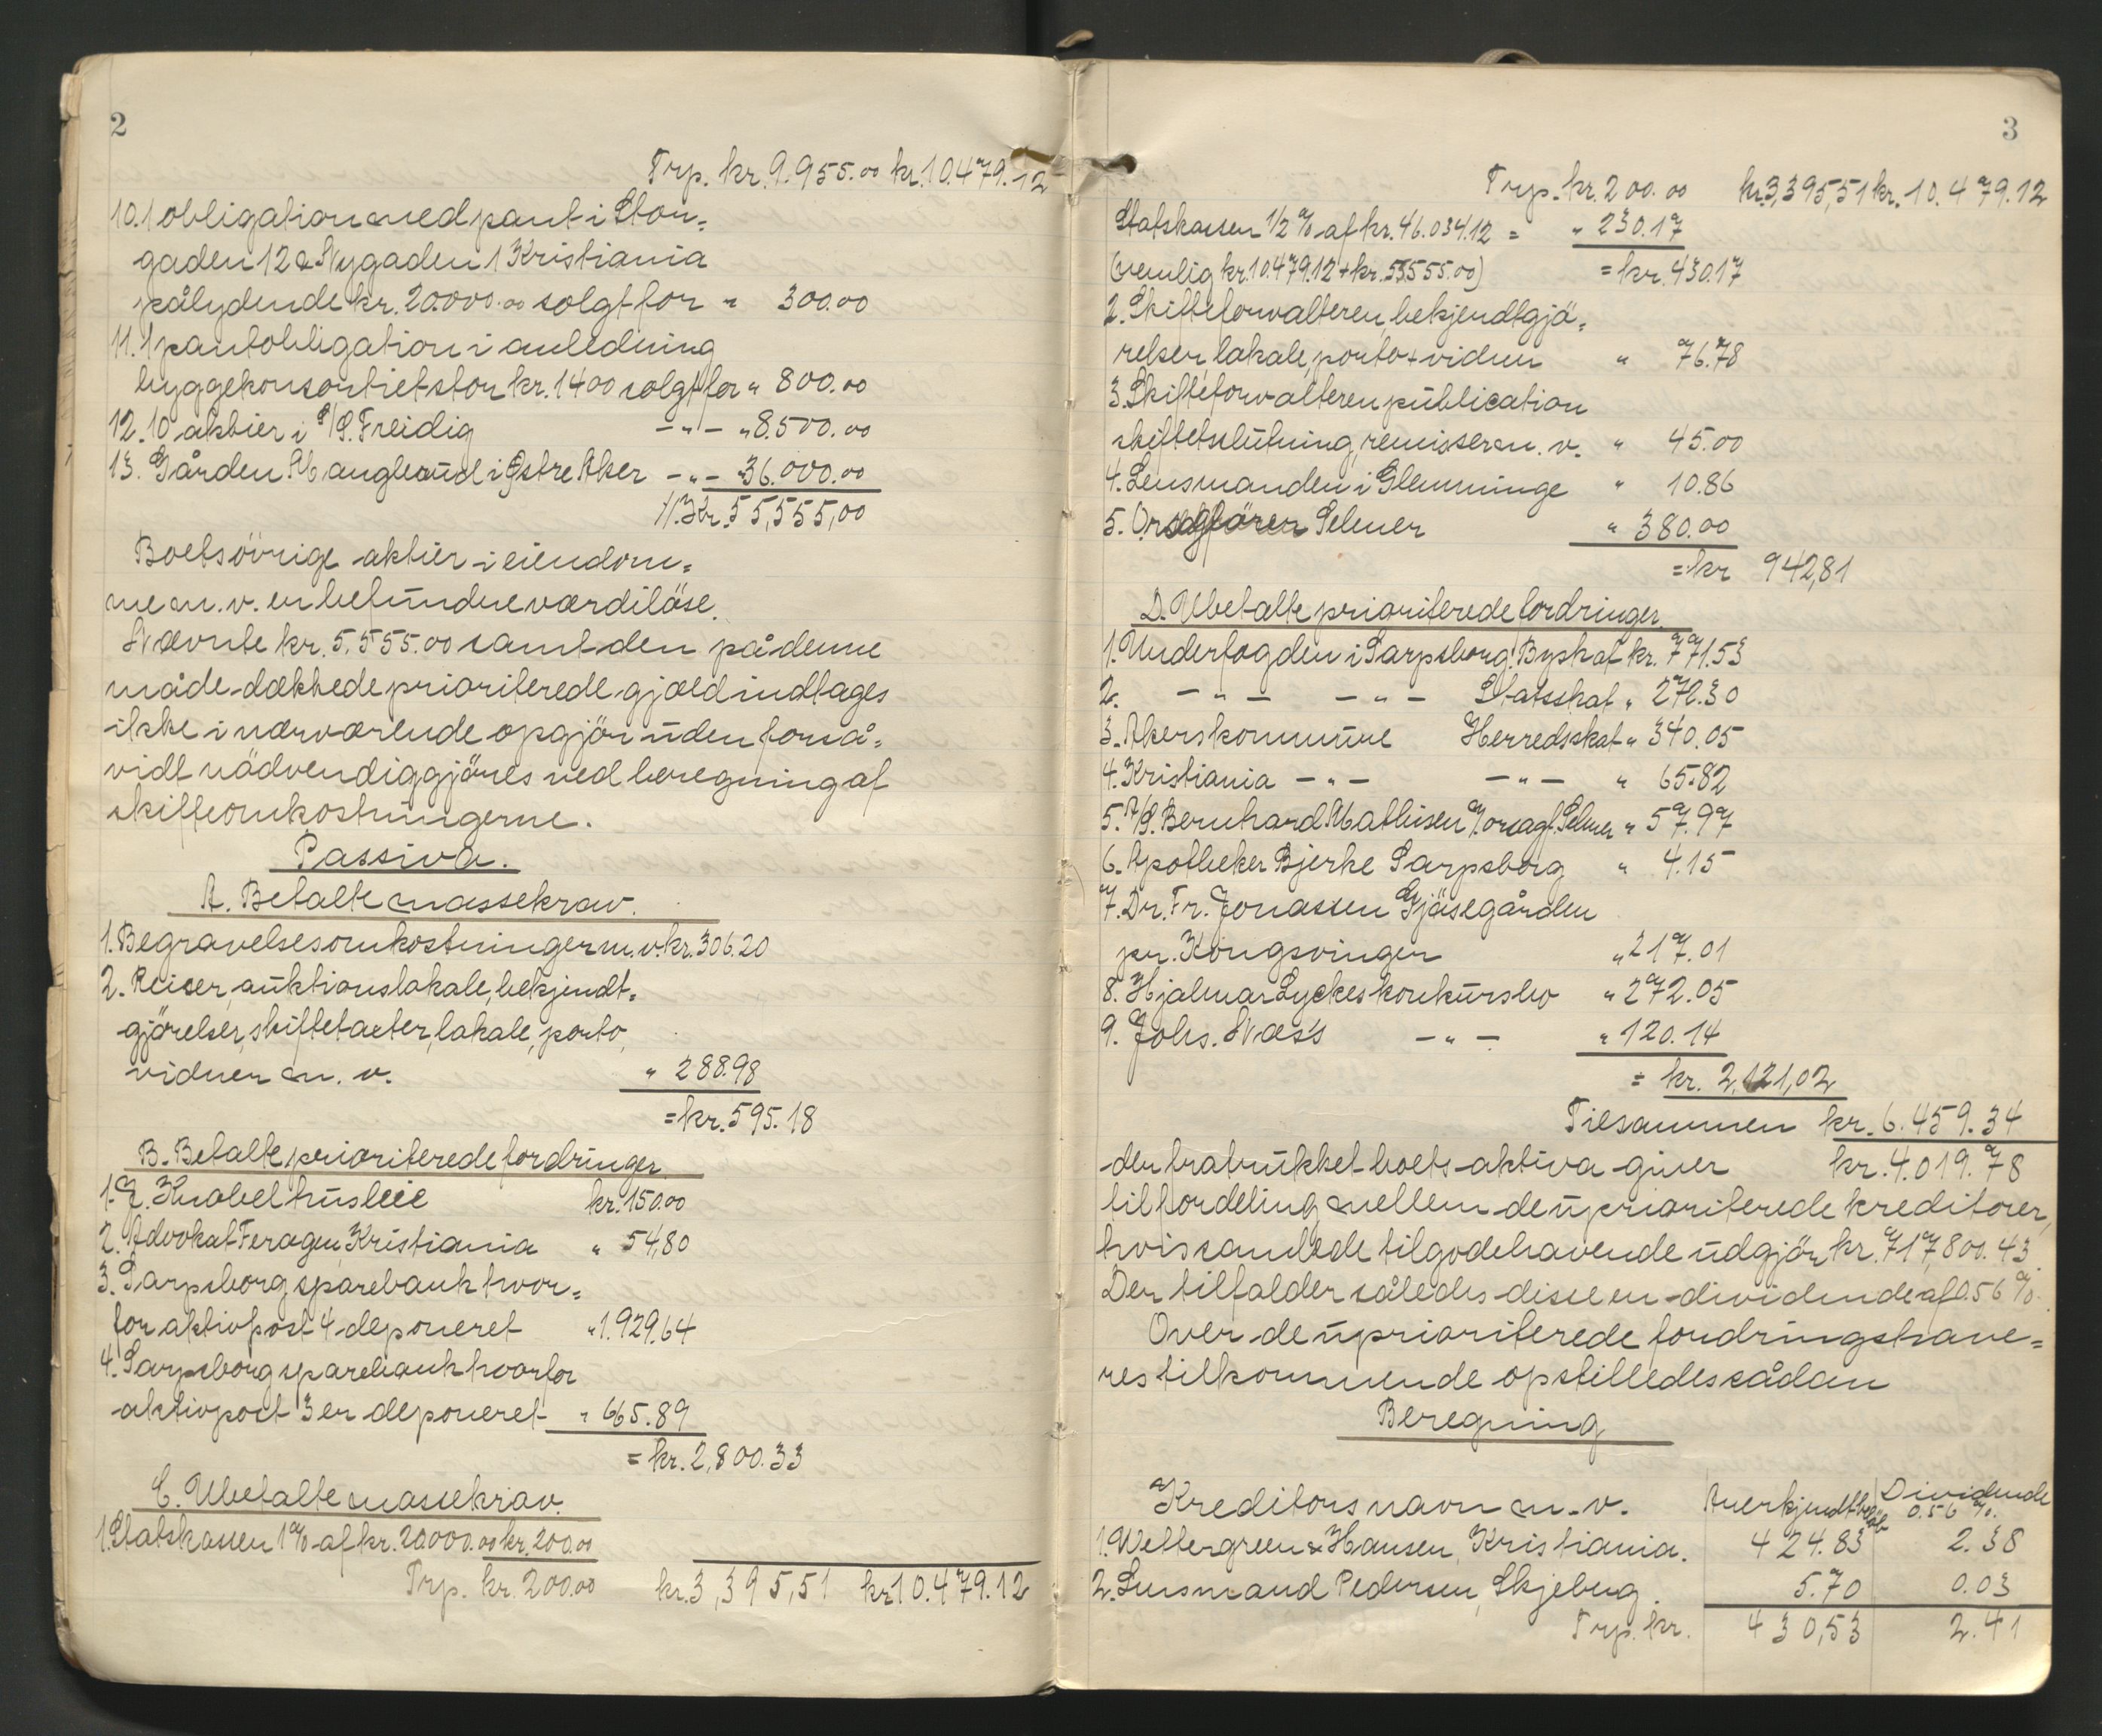 2
Trp. kr. 9.955.00 kr. 10.479.12
10. 1 obligation med pant i Stor=
gaden 12 & Nygaden 1 Kristiania
pålydende kr. 20000.00 solgt for " 300.00
11. 1 pantobligation i anledning
byggekonsortiet stor kr. 1400 solgt for " 800.00
12. 10 aktier i D/S. Freidig -"- " 8.500.00
13. Gården Manglerud i Østre Aker -"- " 36.000.00
Kr. 55,555,00
Boets övrige aktier i eiendom=
me m. v. er befundne værdilöse.
Nævnte kr. 5,555.00 samt den på denne
måde dækkede prioriterede gjæld indtages
ikke i nærværende opgjör uden forså=
vidt nödvendiggjöres ved beregning af
skifteomkostningerne.
Passiva.
A. Betalte massekrav.
1. Begravelsesomkostninger m. v. kr. 306.20
2. Reiser, auktionslokale, bekjendt=
gjörelser, skiftetakter, lokale, porto,
vidner m. v. " 288.98
= kr. 595.18
B. Betalte prioriterede fordringer
1. J. Knobel husleie kr. 150.00
2. Advokat Feragen, Kristiania " 54,80
3. Sarpsborg sparebank hvor=
for aktivpost 4 deponeret " 1.929,64
4. Sarpsborg sparebank hvorfor
aktivpost 3 er deponeret " 665.89
= kr. 2,800.33
C. Ubetalte massekrav.
1. Statskassen 1% af kr. 20000.00 kr. 200.00
Trp. kr. 200.00 kr. 3,395,51 kr 10.479.12
3
Trp. kr. 200.00 kr. 3,395,51 kr. 10.479.12
Statskassen 1/2 % af kr. 46.034.12 = " 230.17
(nemlig kr. 10.479.12 + kr. 35.555.00) = kr. 430.17
2. Skifteforvalteren, bekjendtgjö=
relser, lokale, porto + vidner " 76.78
3. Skifteforvalteren publication
skiftetslutning, remisser m. v. " 45.00
4. Lensmanden i Glemminge " 10.86
5. Orsagförer Selmer " 380.00
= kr 942,81
D. Ubetalte prioriterede fordringer.
1. Underfogden i Sarpsborg Byskat kr. 771.53
2. -"- -"- Statsskat " 272.30
3. Akers kommune Herredsskat " 340.05
4. Kristiania -"- -"- " 65.82
5. A/S. Bernhard Mathisen v/ orsagf. Selmer " 57.97
6. Apotheker Bjerke Sarpsborg " 4.15
7. Dr. Fr. Jonassen Gjøsegården
pr. Kongsvinger " 217.01
8. Hjalmar Lyckes konkursbo " 272.05
9. Johs. Næss -"- " 120.14
= kr. 2,121,02
Tilsammen kr. 6.459.34
der fratrukket boets aktiva giver kr. 4.019.78
til fordeling mellem de upriorterede kreditorer,
hvis samlede tilgodehavende udgjör kr. 717,800.43.
Der tilfalder således disse en dividende af 0.56 %.
Over de uprioriterede fordringshave=
res tilkommende opstilledes sådan
Beregning
Kreditors navn m. v. Anerkjendt belöb Dividende 0.56 %.
1. Wettergreen & Hansen, Kristiania. 424.83 2.38
2. Lensmand Pedersen, Skjeberg. 5.70 0.03
Trp. kr. 430,53 2.41